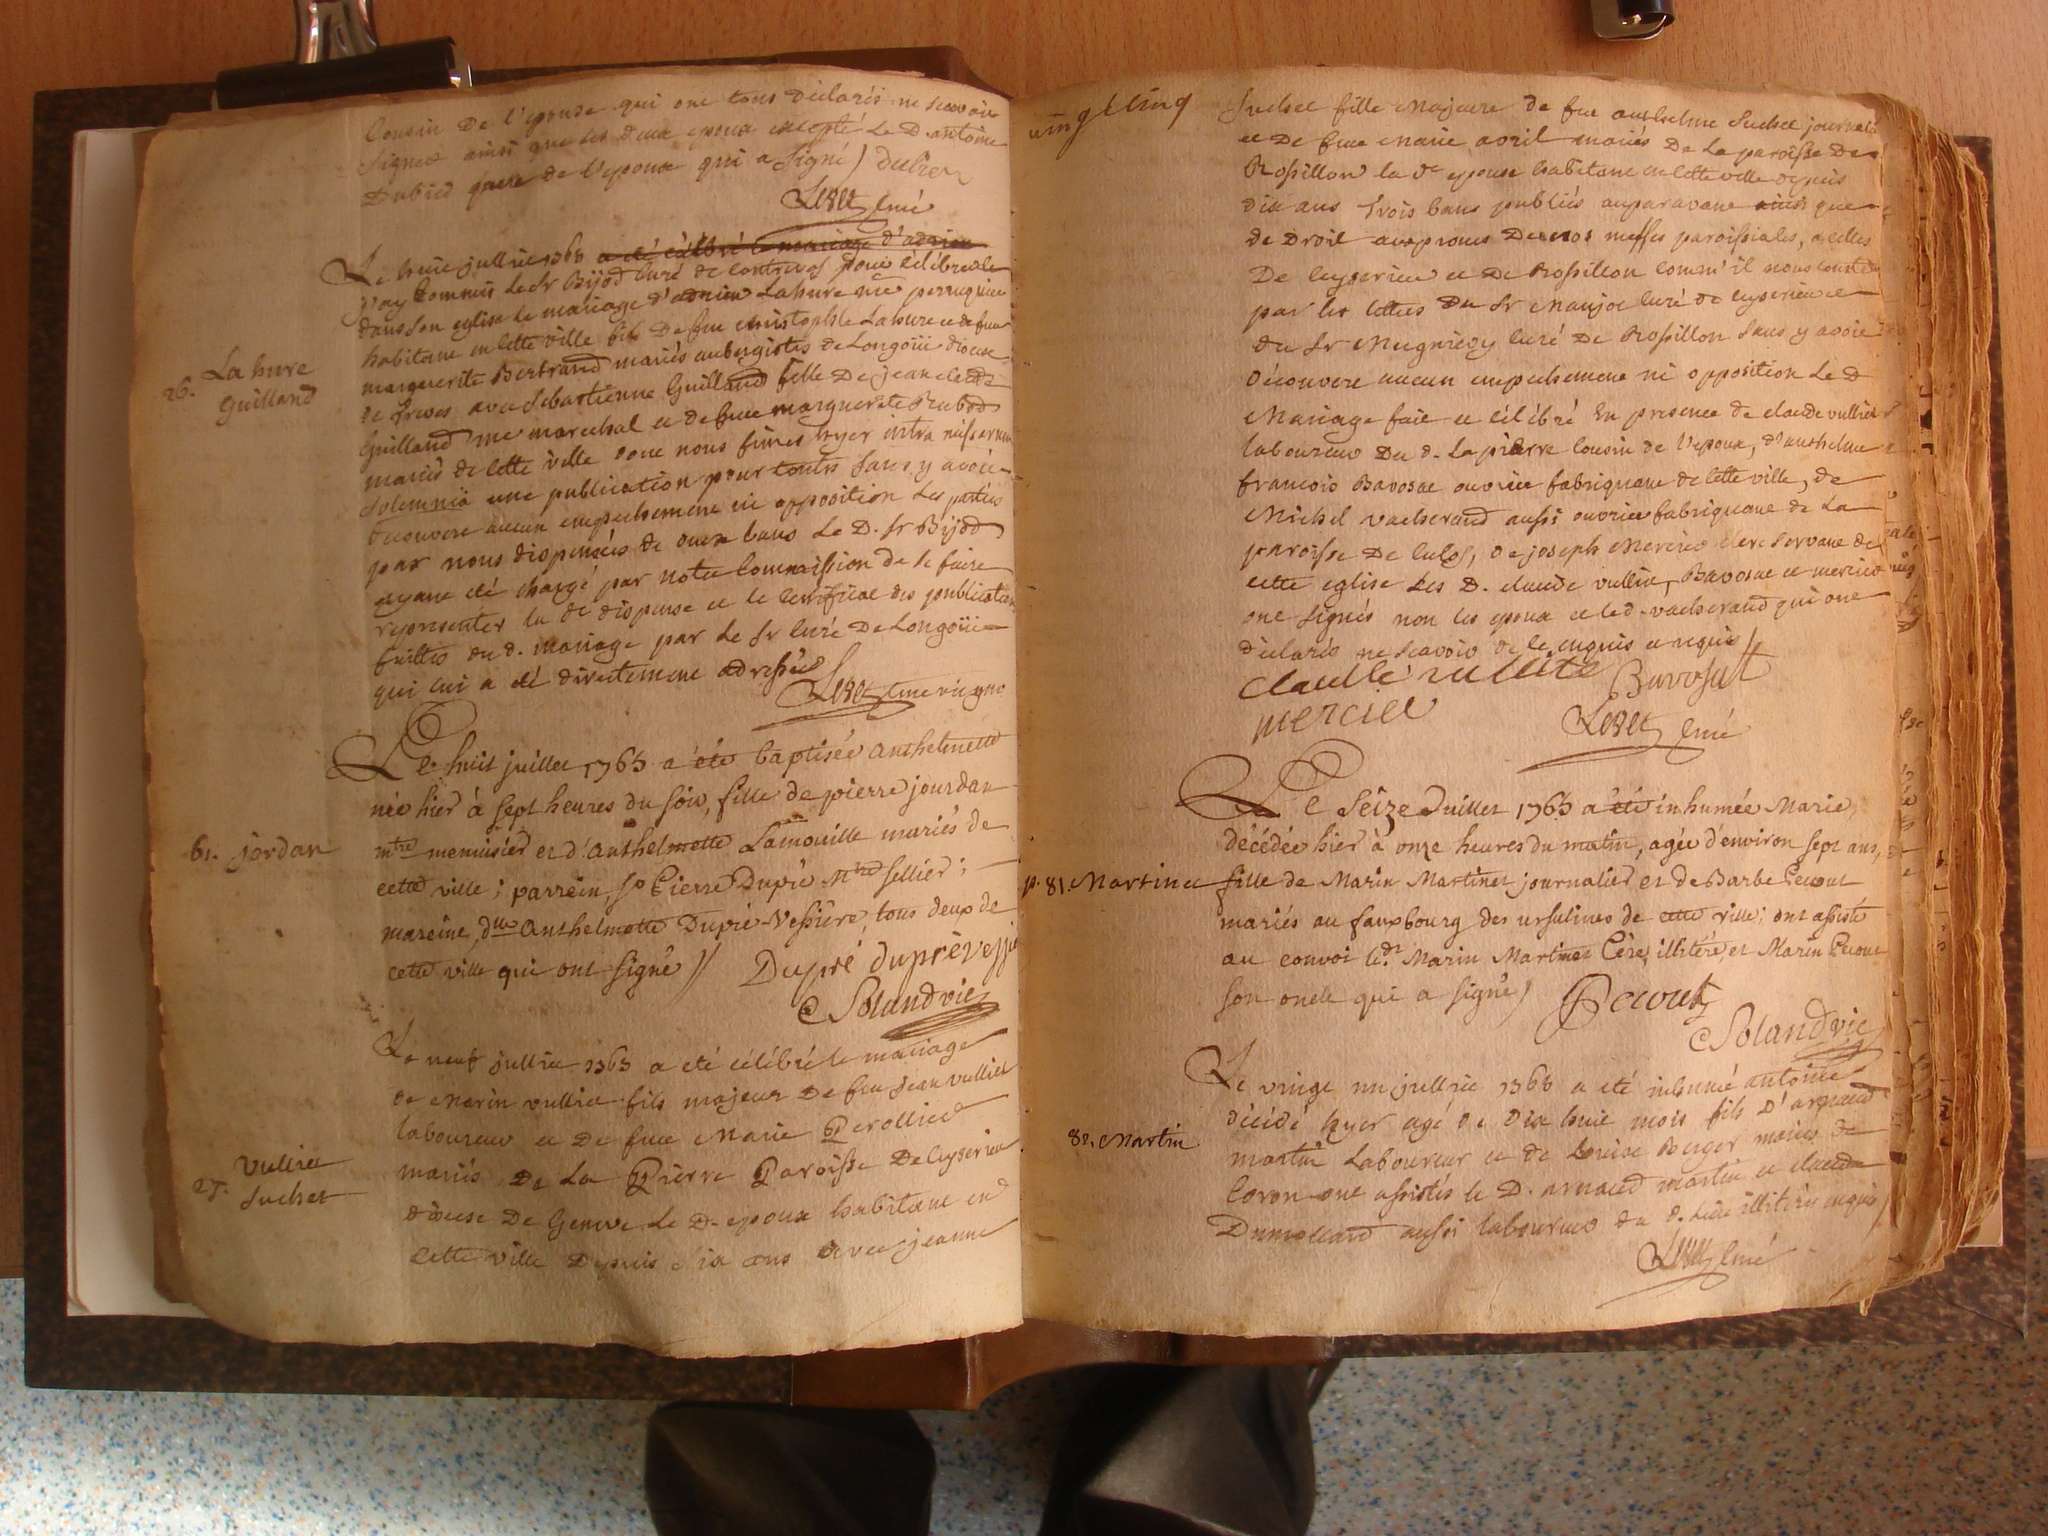 Cousin de l'epouse qui ont tous déclarés ne scavoir
signer ainsi que les deux epoux excepté le D. antoine
Dubied frere de l'epoux qui a signé) dubied
curé
Le huit julliet 1763 a été célébré le mariage d'adrien
j'ay Commis le Sr Bijod curé de contrevoz pour célébrer le
dans son eglise le mariage d'adrien Lahure me perruquier
habitant en cette ville fils de feu christophle Lahure et de feue
marguerite Bertrand mariés aubergistes de Longoüi diocese
26. La hure
Guilland
de Treves avec Sebastienne Guilland fille de jean claude
Guilland me marechal et de feue marguerite Rubod
mariés de cette ville dont nous fimes hyer intra missarum
solemnia une publication pour toutes sans y avoir
decouvert aucun empechement ni opposition les parties
par nous dispensées de deux bans le D. Sr Bijod
ayant été chargé par notre Commission de se faire
representer la de dispense et le certificat des publications
faittes du d. mariage par le Sr curé de Longoüi
qui lui a été directement adressée
curé vic gnal
Le huit juillet 1763 a été baptisée anthelmette
née hier à sept heures du soir, fille de pierre jourdan
61. jordan
mtre menuisier et d'anthelmette Lamouille mariés de
cette ville; parrein, sr Pierre Dupré Mtre sellier;
mareine, dlle Anthelmette Dupré-Vessiere, tous deux de
cette ville qui ont signé // Dupré duprèvessie
Bland vic
Le neuf julliet 1763 a eté célébré le mariage
de marin vulliet fils majeur de feu jean vulliet
laboureur et de feue Marie Perollier
27. Vulliet
Suchet
mariés de La Pierre Paroisse de Ceyserieu
diocese De Geneve le D. epoux habitant en
cette ville Depuis six ans avec jeanne
vingt cinq
Suchet fille Majeure de feu anthelme Suchet journalier
et De feue Marie avril mariés De La paroisse De
Rossillon la de epouse habitant en cette ville depuis
dix ans trois bans publiés auparavant ainsi que
de Droit aux prones De nos messes paroissiales, a celles
De ceyserieu et De Rossillon comm' il nous conste
par les lettres du Sr Manjot curé de ceyserieu et
du Sr Mugnier curé De Rossillon sans y avoir
Découvert aucun empechement ni opposition Le D
Mariage fait et célébré en presence de claude vulliet
laboureur Du d. La pierre cousin de l'epoux, d'anthelme
francois Bavosat ouvrier fabriquant de cette ville, de
Michel vacherand aussi ouvrier fabriquant de La
paroisse De culoz, de joseph Mercier clerc servant de
cette eglise les D. claude vulliet, Bavosat et mercier
ont signés non les epoux et led. vacherand qui ont
déclarés ne scavoir de ce enquis et requis //
Claude vulliete Bavosat
merciel
curé
Le Seize Juillet 1763 a été inhumée Marie,
décédée hier à onze heures du matin, agée d'environ sept ans,
p. 81. Martinet
fille de Marin Martinet journalier et de Barbe Pecout
mariés au fauxbourg des ursulines de cette ville; ont assisté
au convoi led.t Marin Martinet Pere, illiteré, et Marin Pecout
son oncle qui a signé) Pecout
Bland vic
Le vingt un jullier 1763 a eté inhumé antoine
décédé hyer agé de dix huit mois fils D'arnaud
82. Martin
martin Laboureur et de Louise Berger mariés de
Coron ont assistés le D. arnaud martin et claude
Dumollard aussi laboureur du d. lieu illiterés enquis
curé